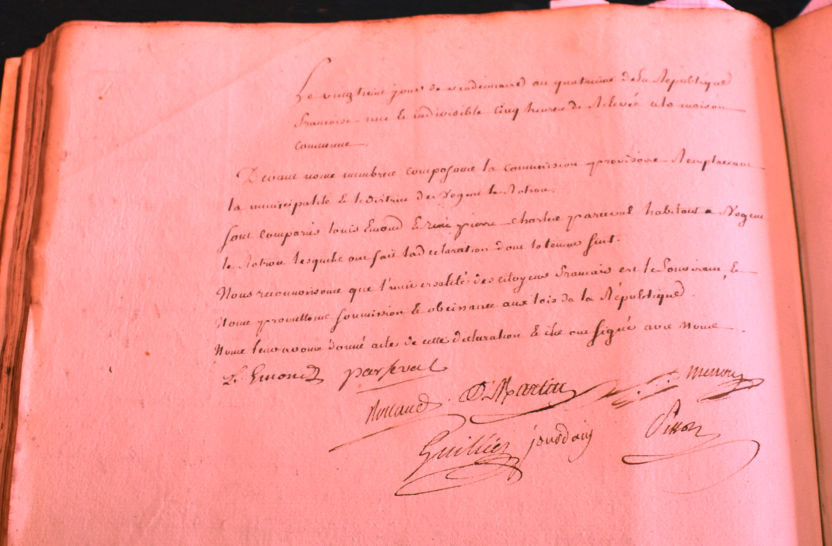 Le vingtieme jour de vendemiaire an quatrieme de la République
francoise une & indivisible cinq heures de Relevée a la maison
commune.
Devant nous membres composans la commission provisoire Remplacant
la municipalité & le district de Nogent le Rotrou.
sont comparus louis Emond & René pierre Charles parseval habitans a Nogent
le Rotrou lesquels ont fait la declaration dont la teneur suit.
Nous reconnoissons que l'universalité des citoyens francais est le souverain, &
Nous promettons soumission & obeissance aux lois de la République.
Nous leur avons donné acte de cette declaration & ils ont signé avec Nous.
L. Emond parseval
Rolland
Guillier jourdain